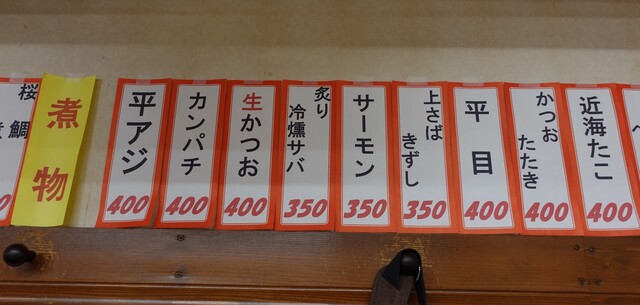 桜
鯛
煮物
平アジ
400
カンパチ
400
生かつお
400
炙り
冷燻サバ
350
サーモン
350
上さば
きずし
350
平目
400
かつお
たたき
400
近海たこ
400